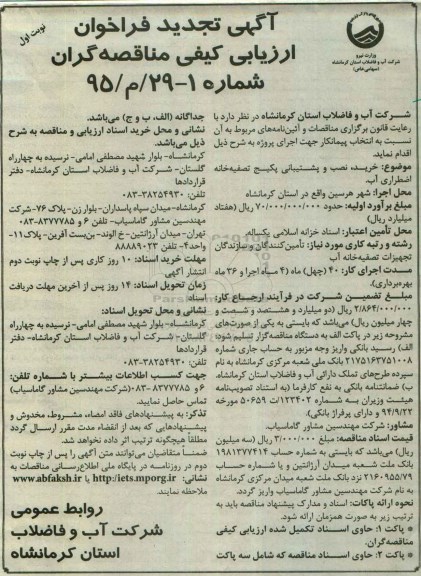 آگهی تجدید فراخوان
ارزیابی کیفی مناقصه‌گران
شماره ۱-۲۹/م/۹۵
نوبت اول
وزارت نیرو
شرکت آب و فاضلاب استان کرمانشاه
(سهامی خاص)
شرکت آب و فاضلاب استان کرمانشاه در نظر دارد با
رعایت قانون برگزاری مناقصات و آئین‌نامه‌های مربوط به آن
نسبت به انتخاب پیمانکار جهت اجرای پروژه به شرح ذیل
اقدام نماید.
موضوع: خرید، نصب و پشتیبانی پکیج تصفیه‌خانه
اضطراری آب.
محل اجرا: شهر هرسین واقع در استان کرمانشاه
مبلغ برآورد اولیه: حدود ۷۰/۰۰۰/۰۰۰/۰۰۰ ریال (هفتاد
میلیارد ریال)
محل تأمین اعتبار: اسناد خزانه اسلامی یکساله
رشته و رتبه کاری مورد نیاز: تأمین‌کنندگان و سازندگان
تجهیزات تصفیه‌خانه آب
مدت اجرای کار: ۴۰ (چهل) ماه (۴ ماه اجرا و ۳۶ ماه
بهره‌برداری).
مبلغ تضمین شرکت در فرآیند ارجاع کار:
۲/۸۶۴/۰۰۰/۰۰۰ ریال (دو میلیارد و هشتصد و شصت و
چهار میلیون ریال) می‌باشد که بایستی به یکی از صورت‌های
مشروحه زیر در پاکت الف به دستگاه مناقصه‌گزار تسلیم شود:
الف) رسید بانکی واریز وجه مزبور به حساب جاری شماره
۲۱۷۵۱۶۳۷۵۱۰۰۸ بانک ملی شعبه مرکزی کرمانشاه به نام
سپرده طرح‌های تملک دارائی آب و فاضلاب استان کرمانشاه.
ب) ضمانتنامه بانکی به نفع کارفرما (به استناد تصویب‌نامه
هیئت وزیران به شماره ۱۲۳۴۰۲/ت ۵۰۶۵۹ مورخه
۹۴/۹/۲۲ و دارای پرفراژ بانکی).
مشاور: شرکت مهندسین مشاور گاماسیاب.
قیمت اسناد مناقصه: مبلغ ۳/۰۰۰/۰۰۰ ریال (سه میلیون
ریال) می‌باشد که بایستی به شماره حساب ۱۹۸۱۳۷۷۴۱۴
بانک ملت شعبه میدان آرژانتین و یا شماره حساب
۲۱۶۰۹۵۵/۷۹ نزد بانک ملت شعبه میدان مرکزی کرمانشاه
به نام شرکت مهندسین مشاور گاماسیاب واریز گردد.
نحوه ارائه پاکات: اسناد و مدارک پیشنهاد مناقصه باید به
ترتیب زیر به صورت همزمان ارائه شود.
پاکت ۱: حاوی اسناد تکمیل شده ارزیابی کیفی
مناقصه‌گران.
پاکت ۲: حاوی اسناد مناقصه که شامل سه پاکت
جداگانه (الف، ب و ج) می‌باشد.
نشانی و محل خرید اسناد ارزیابی و مناقصه به شرح
ذیل می‌باشد.
کرمانشاه- بلوار شهید مصطفی امامی- نرسیده به چهارراه
گلستان- شرکت آب و فاضلاب استان کرمانشاه- دفتر
قراردادها
تلفن: ۳۸۲۵۴۹۳۰-۰۸۳
کرمانشاه- میدان سپاه پاسداران- بلوار زن- پلاک ۷۶- شرکت
مهندسین مشاور گاماسیاب- تلفن ۶ و ۸۳۷۷۷۸۵-۰۸۳
تهران- میدان آرژانتین- خ الوند- بن‌بست آفرین- پلاک۱۱-
واحد۴- تلفن ۸۸۸۸۹۰۲۳
مهلت خرید اسناد: ۱۰ روز کاری پس از چاپ نوبت دوم
انتشار آگهی
زمان تحویل اسناد: ۱۴ روز پس از آخرین مهلت دریافت
اسناد.
نشانی و محل تحویل اسناد:
کرمانشاه- بلوار شهید مصطفی امامی- نرسیده به چهارراه
گلستان- شرکت آب و فاضلاب استان کرمانشاه- دفتر
قراردادها
تلفن: ۳۸۲۵۴۹۳۰-۰۸۳
جهت کسب اطلاعات بیشتر با شماره تلفن:
۶ و ۸۳۷۷۷۸۵-۰۸۳ (شرکت مهندسین مشاور گاماسیاب)
تماس حاصل نمایید.
تذکر: به پیشنهادهای فاقد امضاء، مشروط، مخدوش و
پیشنهادهایی که بعد از انقضاء مدت مقرر ارسال گردد
مطلقاً هیچگونه ترتیب اثر داده نخواهد شد.
ضمناً متقاضیان می‌توانند متن آگهی را پس از چاپ نوبت
دوم در روزنامه در پایگاه ملی اطلاع‌رسانی مناقصات به
نشانی: http://iets.mporg.ir یا www.abfaksh.ir
ملاحظه نمایند.
روابط عمومی
شرکت آب و فاضلاب
استان کرمانشاه